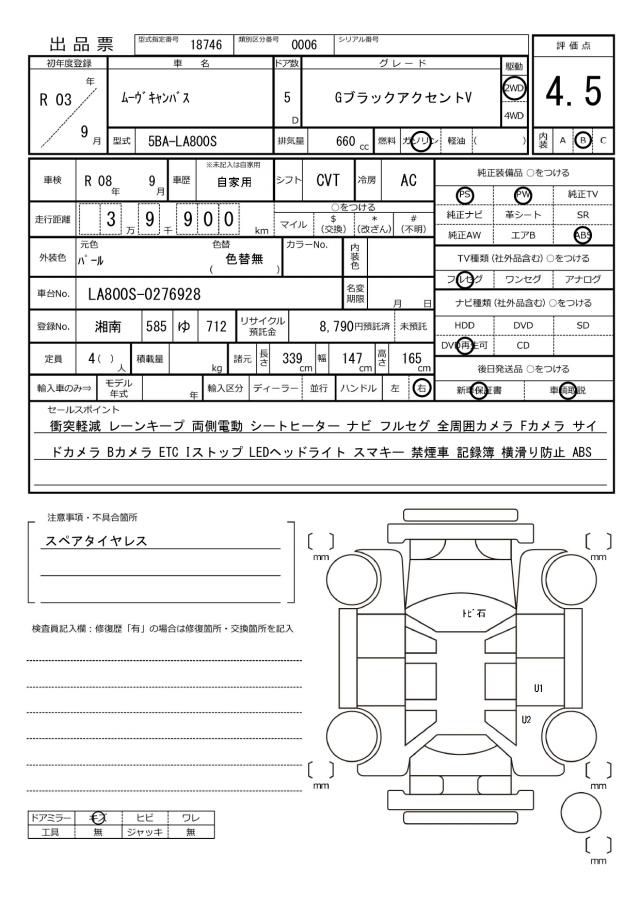 出品票 型式指定番号 18746 類別区分番号 0006 シリアル番号
初年度登録 車名 ドア数 グレード 駆動 評価点
R 03 年 9 月 ﾑｰｳﾞｷｬﾝﾊﾞｽ 5 D GブラックアクセントV 2WD 4WD 4.5
型式 5BA-LA800S 排気量 660 cc 燃料 ガソリン 軽油 ( ) 内装 A B C
車検 R 08 年 9 月 車歴 ※未記入は自家用 自家用 シフト CVT 冷房 AC
純正装備品 ○をつける
PS PW 純正TV
純正ナビ 革シート SR
純正AW エアB ABS
走行距離 3 万 9 千 9 0 0 km
○をつける
マイル $ (交換) * (改ざん) # (不明)
外装色 元色 ﾊﾟｰﾙ 色替 ( 色替無 ) カラーNo. 内装色
TV種類 (社外品含む) ○をつける
フルセグ ワンセグ アナログ
車台No. LA800S-0276928 名変期限 月 日
ナビ種類 (社外品含む) ○をつける
HDD DVD SD
DVD再生可 CD
登録No. 湘南 585 ゆ 712 リサイクル預託金 8,790円預託済 未預託
定員 4 ( ) 人 積載量 kg 諸元 長さ 339 cm 幅 147 cm 高さ 165 cm
後日発送品 ○をつける
新車保証書 車輌取説
輸入車のみ⇒ モデル年式 年 輸入区分 ディーラー 並行 ハンドル 左 右
セールスポイント
衝突軽減 レーンキープ 両側電動 シートヒーター ナビ フルセグ 全周囲カメラ Fカメラ サイ
ドカメラ Bカメラ ETC Iストップ LEDヘッドライト スマキー 禁煙車 記録簿 横滑り防止 ABS
注意事項・不具合箇所
スペアタイヤレス
検査員記入欄：修復歴「有」の場合は修復箇所・交換箇所を記入
〔 〕 mm 〔 〕 mm
ﾄﾋﾞ石
U1
U2
〔 〕 mm 〔 〕 mm
ドアミラー キズ ヒビ ワレ
工具 無 ジャッキ 無
〔 〕 mm